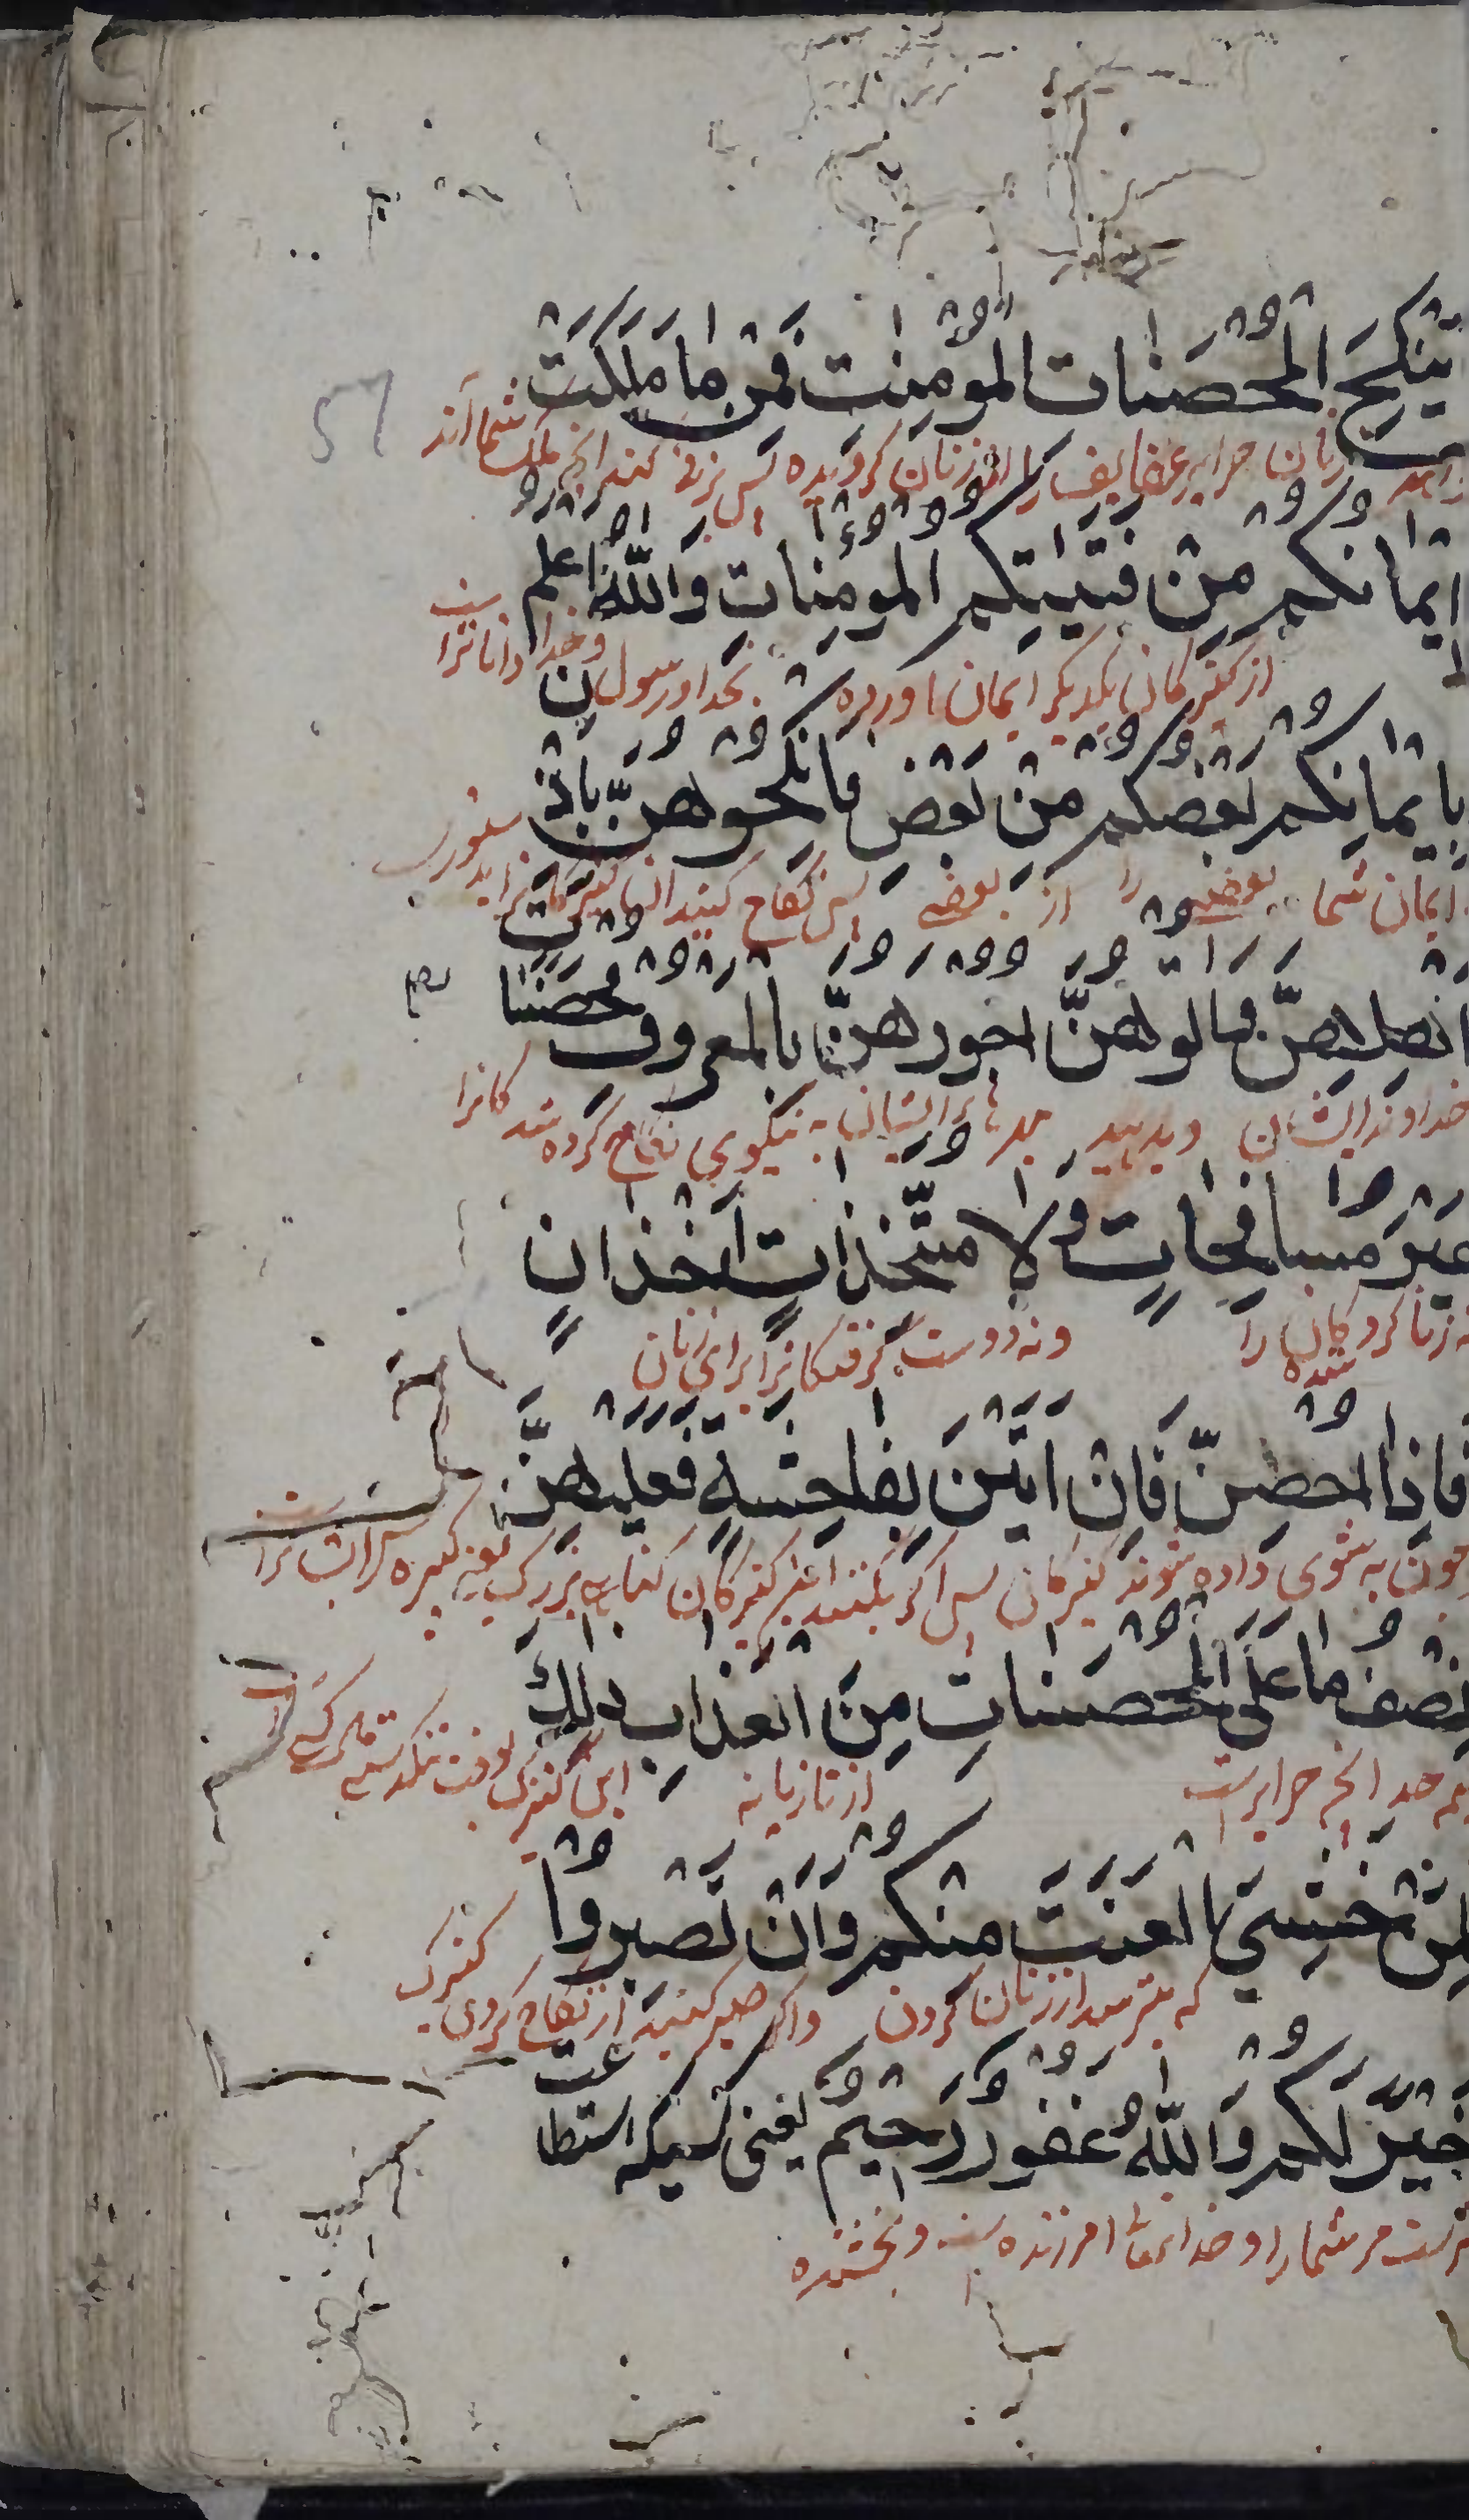 ينكح المحصنات المومنت فمن ما ملكت
زنان حراير عفايف را از زنان گرویده پس بزنی کنند انچه ملک شما اند
ايمانكم من فتيتكم المومنات والله اعلم
از کنیزکان یکدیگر ایمان اورده بخدا و رسول و خدا داناتر است
بايمانكم بعضكم من بعض فانكحوهن باذن
ایمان شما بعضی را از بعضی پس نکاح کنید کنیزکانرا بدستوری
اهلهن واتوهن اجورهن بالمعروف محصنات
خداوند ایشان و بدهید مهرهای ایشان به نیکوی نکاح کرده شدکانرا
غير مسافحات ولا متخذات اخذان
نه زنا کردکان را ونه دوست گرفتکانرا برای زنان
فاذا احصن فان اتين بفاحشة فعليهن
چون به شوی داده شوند کنیزکان پس اگر بکنند این کنیزکان کناه بزرگ یعنی کبیره پس ایشانرا
نصف ما على المحصنات من العذاب ذلك
نیم حد انچه حرایراست از تازیانه این کنیزک بوقت تنکدستی
لمن خشي العنت منكم وان تصبروا
که بترسد از زنان کردن واگر صبر کنید از نکاح کردن کنیزک
خير لكم والله غفور رحيم یعنی کسیکه استطاعت
بهترست مر شمارا و خدایتعالی امرزنده است و بخشنده